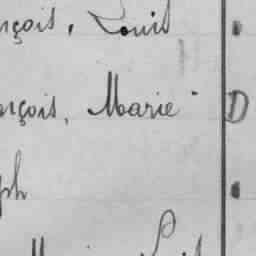 nçois, Louis
ançois, Marie D
ph